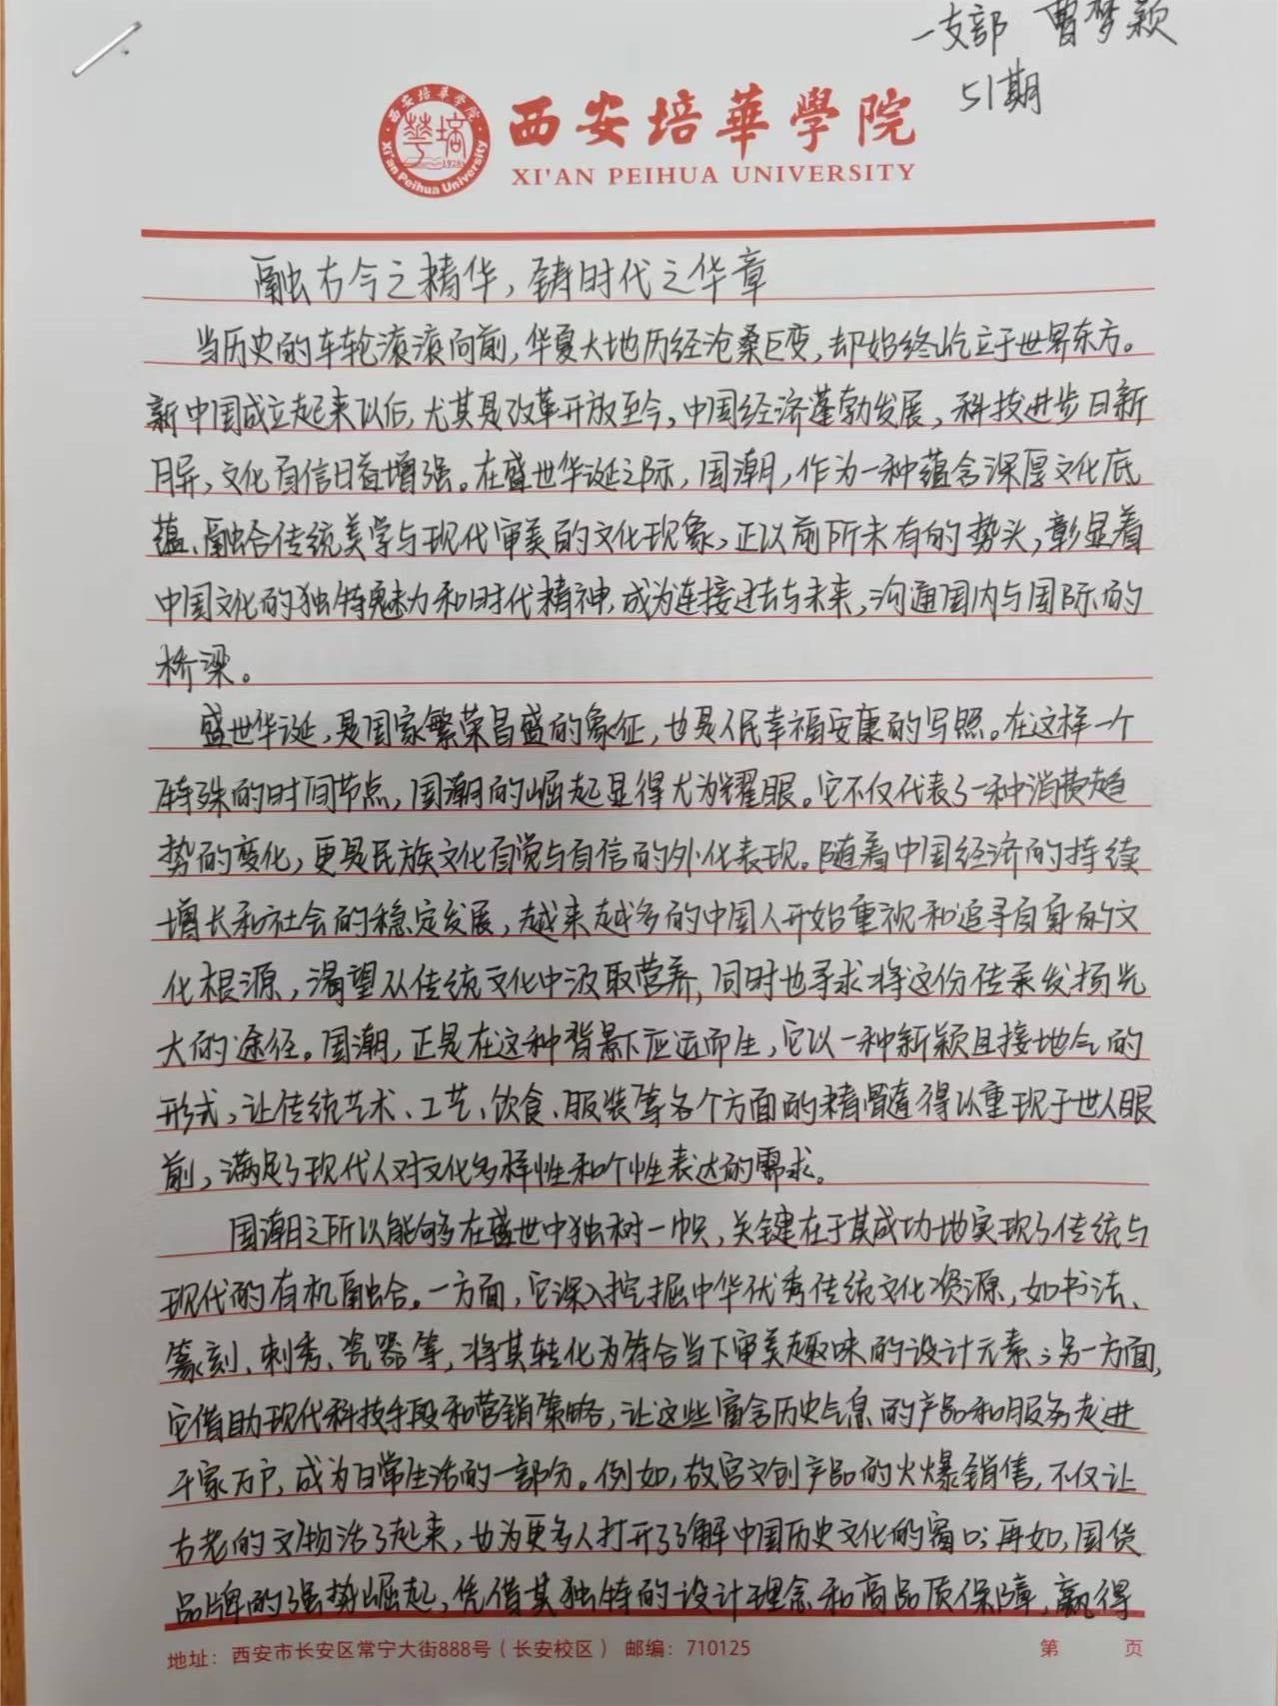 一支部 曹梦颖
51期
西安培華學院
XI'AN PEIHUA UNIVERSITY
西安培華學院
Xi'an Peihua University
融古今之精华，铸时代之华章
当历史的车轮滚滚向前，华夏大地历经沧桑巨变，却始终屹立于世界东方。
新中国成立起来以后，尤其是改革开放至今，中国经济蓬勃发展，科技进步日新
月异，文化自信日益增强。在盛世华诞之际，国潮，作为一种蕴含深厚文化底
蕴、融合传统美学与现代审美的文化现象，正以前所未有的势头，彰显着
中国文化的独特魅力和时代精神，成为连接过去与未来，沟通国内与国际的
桥梁。
盛世华诞，是国家繁荣昌盛的象征，也是人民幸福安康的写照。在这样一个
特殊的时间节点，国潮的崛起显得尤为耀眼。它不仅代表了一种消费趋
势的变化，更是民族文化自觉与自信的外化表现。随着中国经济的持续
增长和社会的稳定发展，越来越多的中国人开始重视和追寻自身的文
化根源，渴望从传统文化中汲取营养，同时也寻求将这份传承发扬光
大的途径。国潮，正是在这种背景下应运而生，它以一种新颖且接地气的
形式，让传统艺术、工艺、饮食、服装等各个方面的精髓得以重现于世人眼
前，满足了现代人对文化多样性和个性表达的需求。
国潮之所以能够在盛世中独树一帜，关键在于其成功地实现了传统与
现代的有机融合。一方面，它深入挖掘中华优秀传统文化资源，如书法、
篆刻、刺秀、瓷器等，将其转化为符合当下审美趣味的设计元素；另一方面，
它借助现代科技手段和营销策略，让这些富含历史气息的产品和服务走进
千家万户，成为日常生活的一部分。例如，故宫文创产品的火爆销售，不仅让
古老的文物活了起来，也为更多人打开了了解中国历史文化的窗口；再如，国货
品牌的强势崛起，凭借其独特的设计理念和商品质保障，赢得
地址：西安市长安区常宁大街888号（长安校区） 邮编：710125 第 页